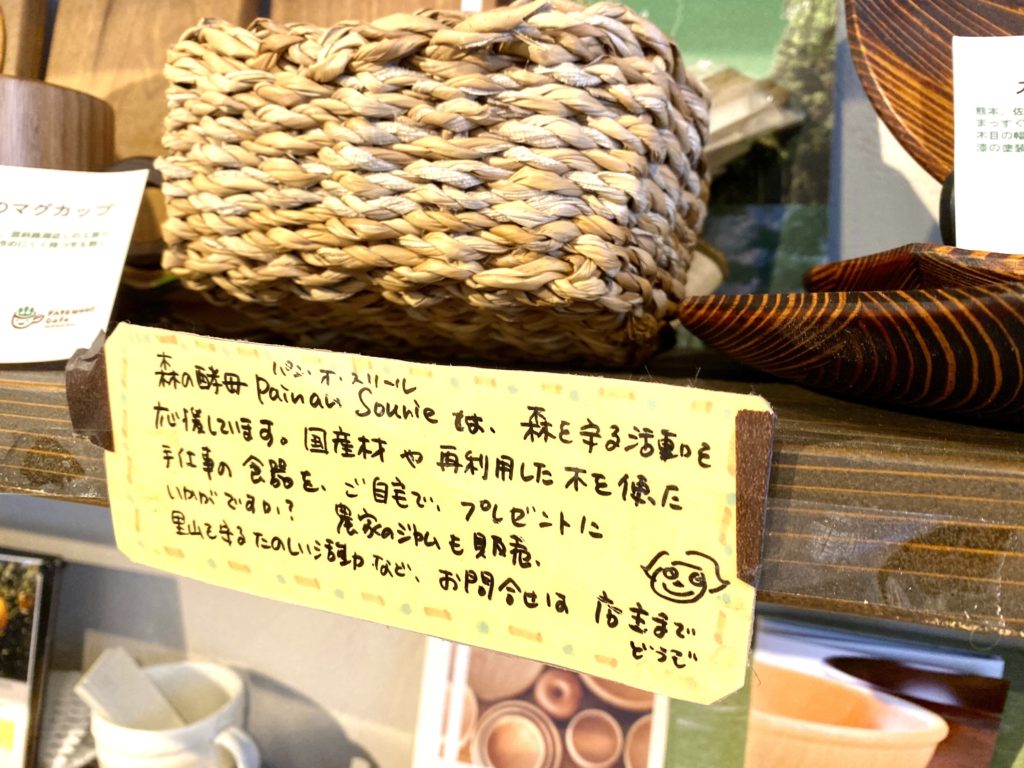 のマグカップ
Cafe
熊本、佐
まっすぐ
木目の幅
漆の塗装
パン・オ・スリール
森の酵母 Painau Sourie は、森を守る活動を
応援しています。国産材や再利用した木を使った
手仕事の食器を、ご自宅で、プレゼントに
いかがですか? 農家のジャムも販売、
里山を守るたのしい活動など、お問合せは 店主まで
どうぞ